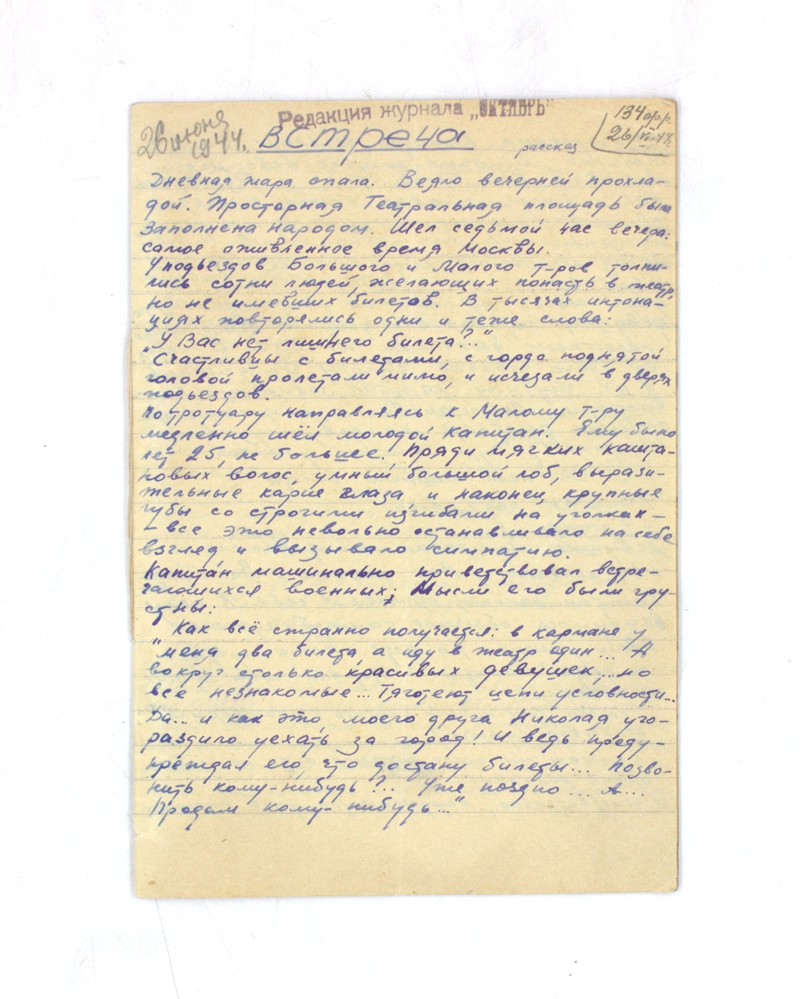 Редакция журнала „ОКТЯБРЬ"
26 июня
1944.
134
26/VI-44.
Встреча
рассказ
Дневная жара спала. Веяло вечерней прохла-
дой. Просторная Театральная площадь была
заполнена народом. Шел седьмой час вечера:
самое оживленное время Москвы.
У подъездов Большого и Малого т-ров толпи-
лись сотни людей, желающих попасть в театр,
но не имевших билетов. В тысячах интона-
циях повторялись одни и теже слова:
„У Вас нет лишнего билета?.."
Счастливцы с билетами, с гордо поднятой
головой пролетали мимо, и исчезали в дверях
подъездов.
По тротуару направляясь к Малому т-ру
медленно шёл молодой капитан. Ему было
лет 25, не больше. Пряди мягких кашта-
новых волос, умный большой лоб, вырази-
тельные карие глаза и наконец крупные
губы со строгими изгибами на уголках –
– все это невольно останавливало на себе
взгляд и вызывало симпатию.
Капитан машинально приветствовал встре-
чавшихся военных; Мысли его были гру-
стны:
„Как всё странно получается: в кармане у
меня два билета, а иду в театр один... А
вокруг столько красивых девушек... но
все незнакомые... Тяготеют цепи условности...
Да... и как это моего друга Николая уго-
раздило уехать за город! И ведь преду-
преждал его, что достану билеты... Позво-
нить кому-нибудь?.. Уже поздно... А...
Продам кому-нибудь..."